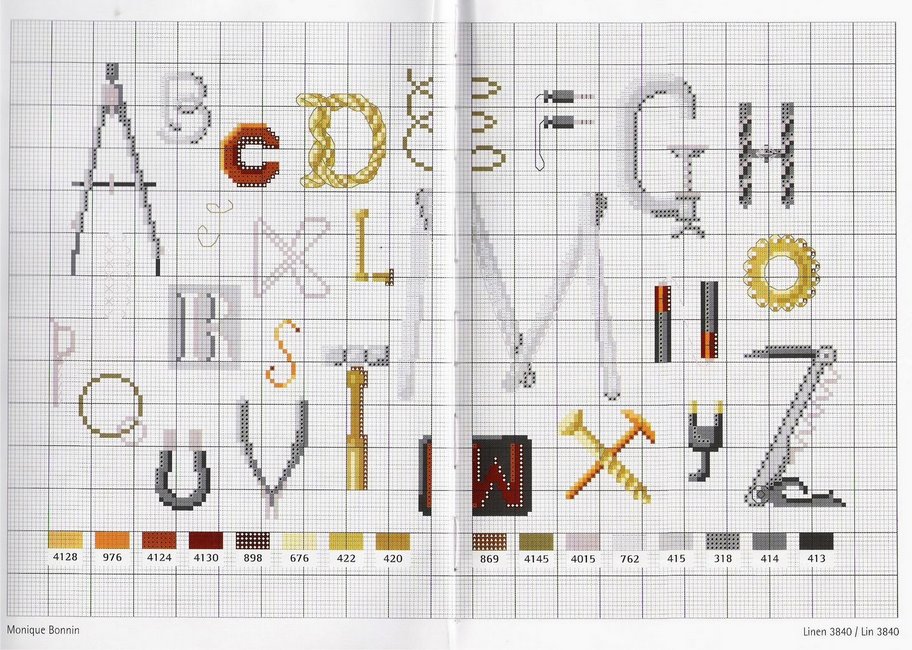 A B C D E F G H
K L M N O
P Q R S T
U V W X Y Z
4128 976 4124 4130 898 676 422 420 869 4145 4015 762 415 318 414 413
Monique Bonnin Linen 3840 / Lin 3840